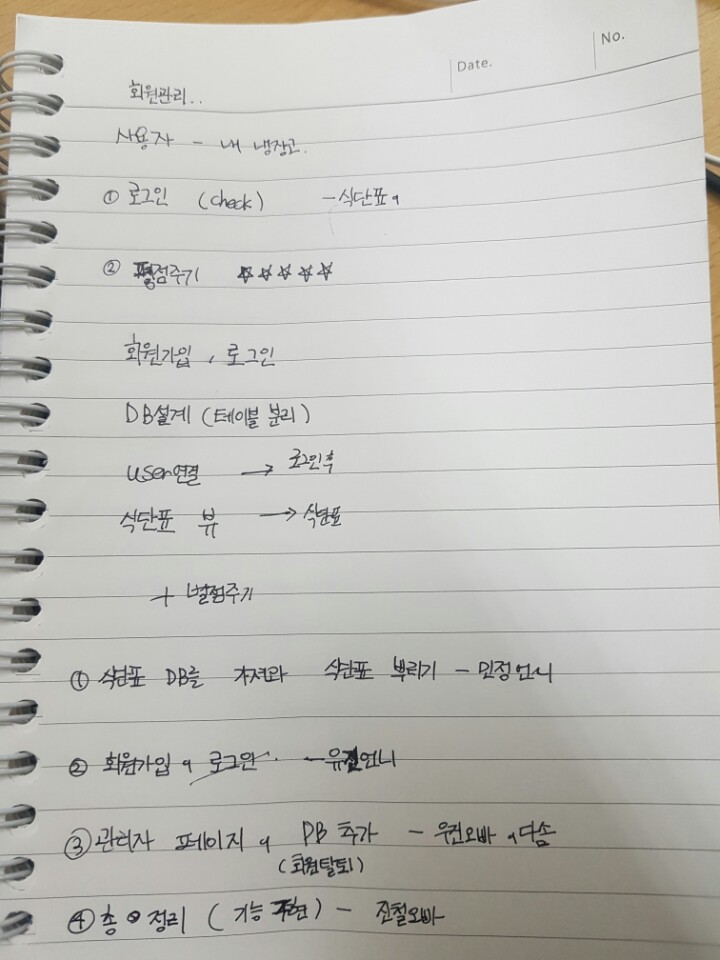 Date.
No.
회원관리..
사용자 - 내 냉장고.
① 로그인 (check) - 식단표,
② 평점주기 ☆☆☆☆☆
회원가입, 로그인
DB설계 (테이블 분리)
user연결 → 로그인후
식단표 뷰 → 식단표
+ 별점주기
① 식단표 DB를 가져와 식단표 뿌리기 - 민정언니
② 회원가입, 로그인. - 유진언니
③ 관리자 페이지, DB 추가 - 우진오빠, 다솜
(회원탈퇴)
④ 총 정리 (기능 구현) - 진철오빠